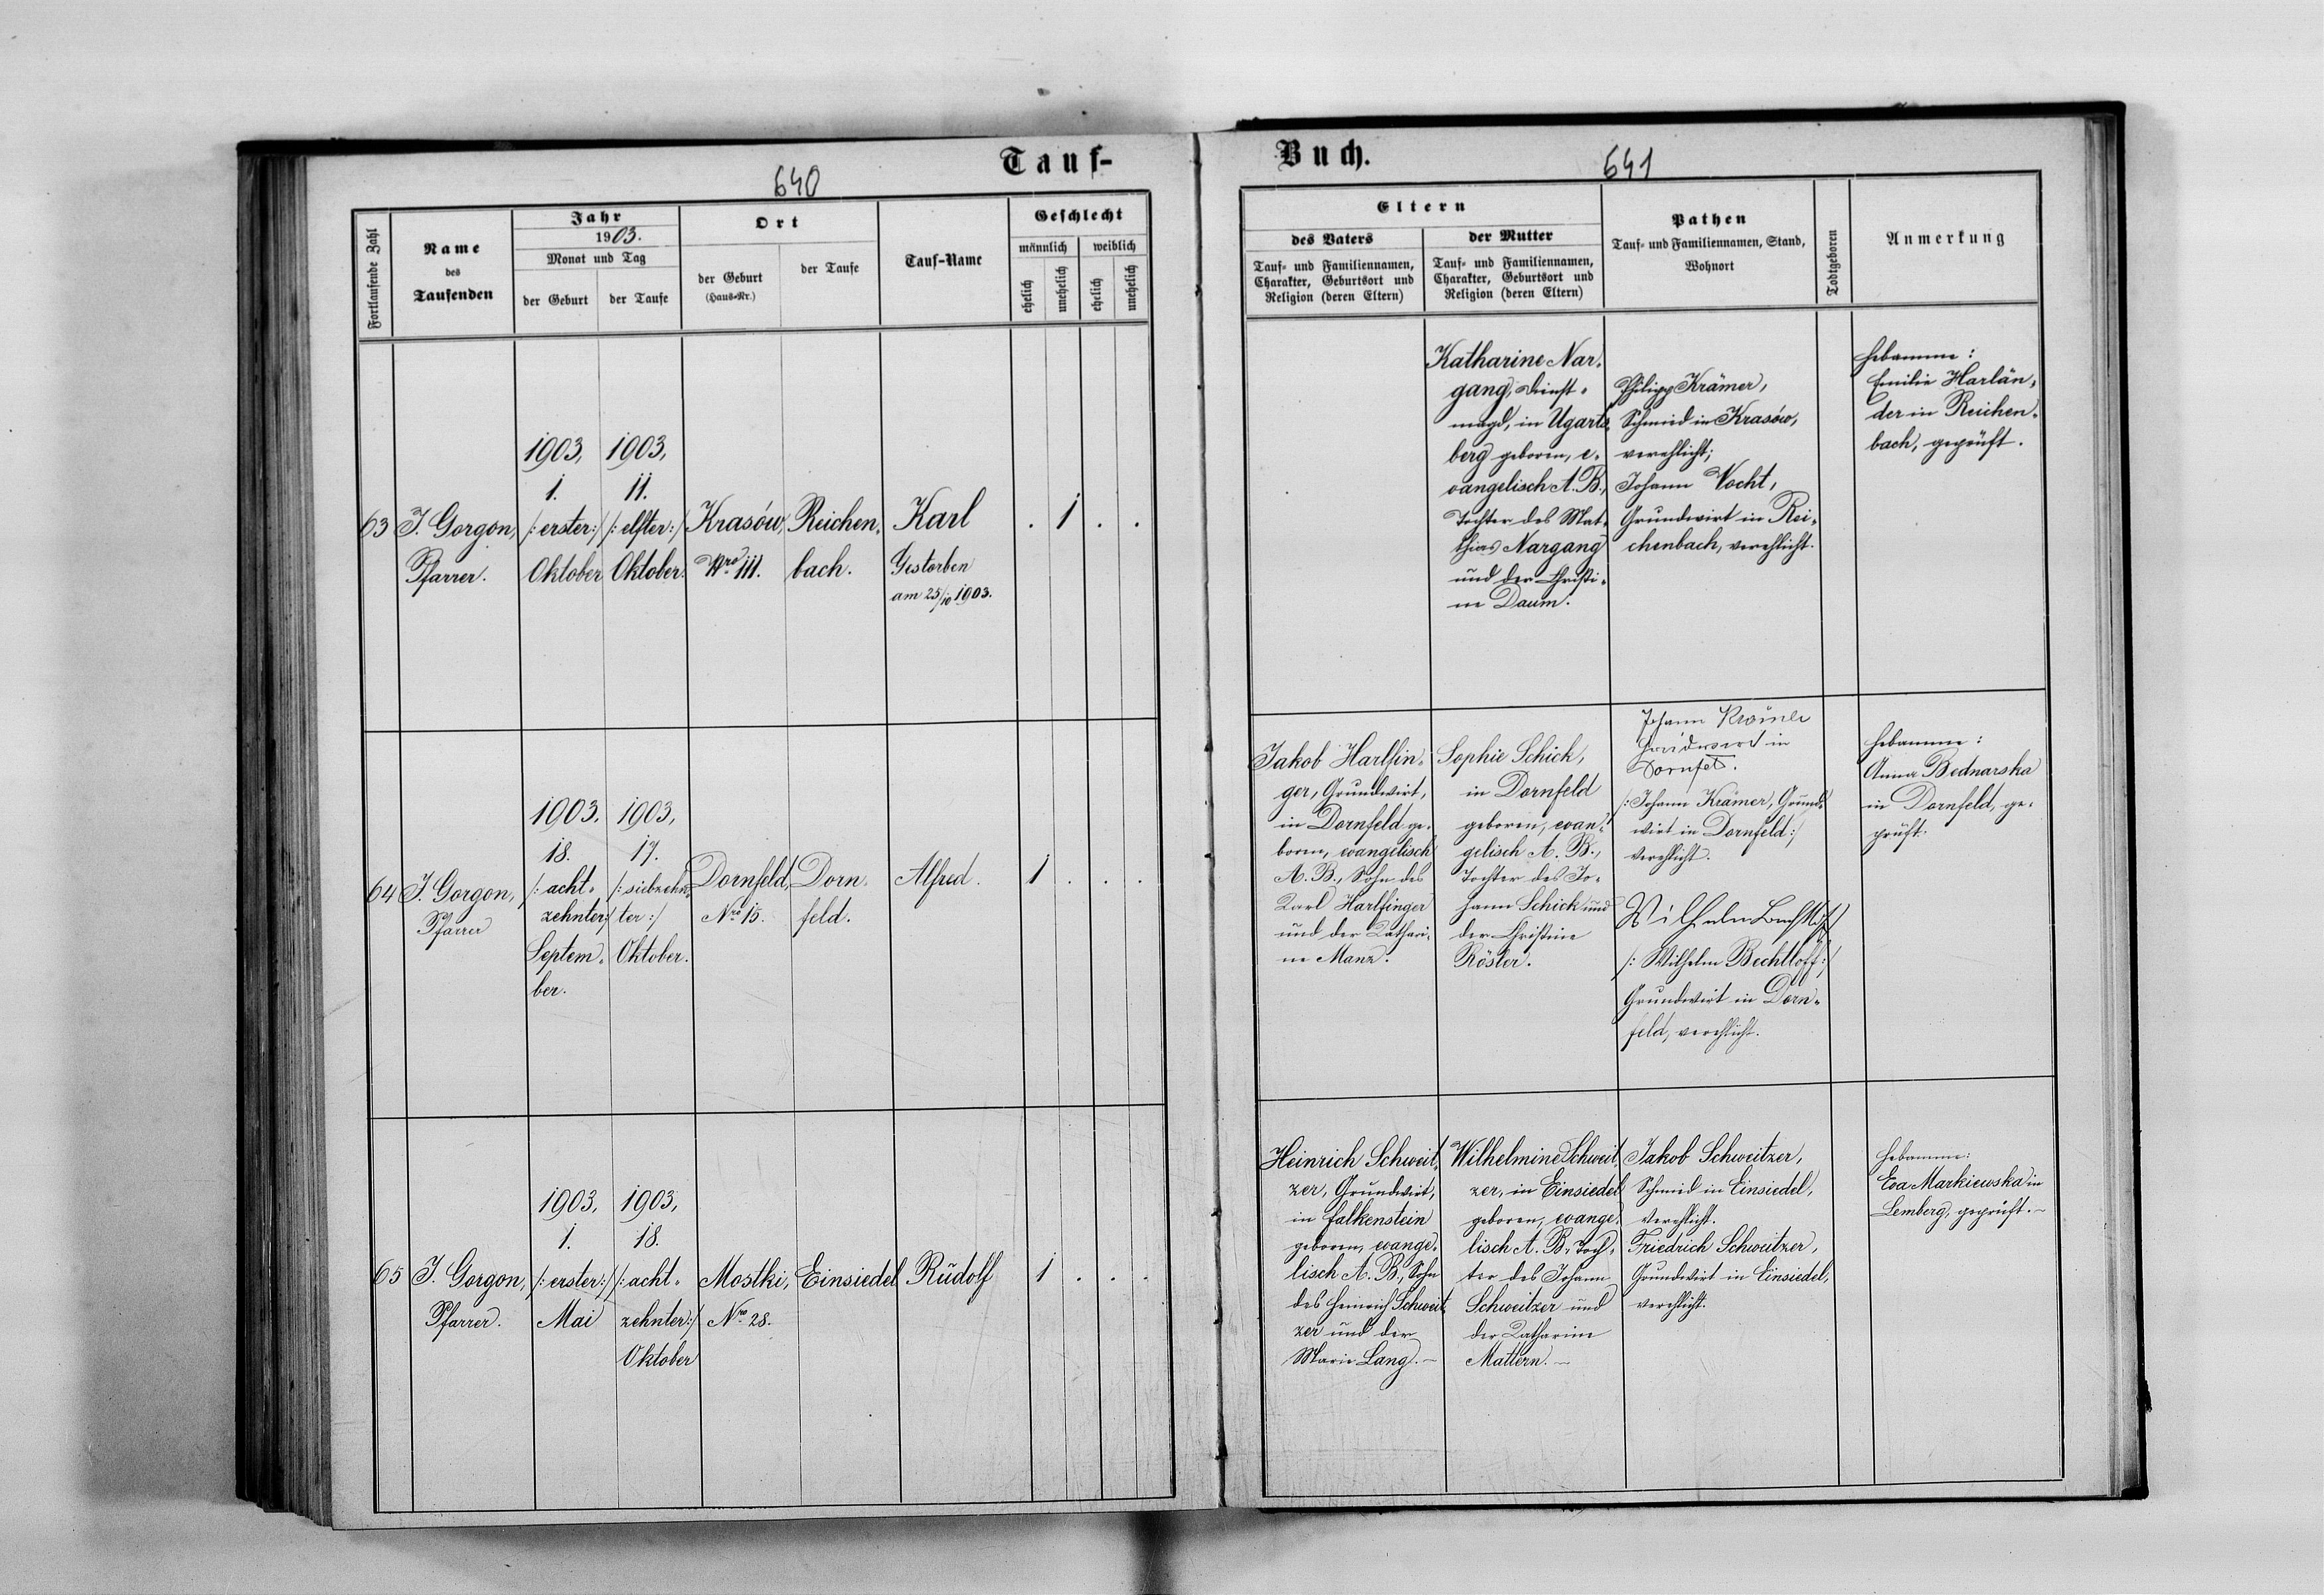 640
Tauf-
Fortlaufende Zahl
Name
des
Taufenden
Jahr
1903.
Monat und Tag
der Geburt
der Taufe
Ort
der Geburt
(Haus-Nr.)
der Taufe
Tauf-Name
Geschlecht
männlich
weiblich
ehelich
unehelich
ehelich
unehelich
63
J. Gorgon,
Pfarrer.
1903,
1.
/: erster :/
Oktober
1903,
11.
/: elfter :/
Oktober.
Krasów,
Nro 111.
Reichen-
bach.
Karl
Gestorben
am 25/10 1903.
. 1 . .
64
J. Gorgon,
Pfarrer
1903.
18.
/: acht-
zehnter :/
Septem-
ber.
1903,
17.
/: siebzehn-
ter :/
Oktober.
Dornfeld,
Nro 15.
Dorn-
feld.
Alfred.
1 . . .
65
J. Gorgon,
Pfarrer.
1903,
1.
/: erster :/
Mai
1903,
18.
/: acht-
zehnter :/
Oktober
Mostki,
Nro 28.
Einsiedel
Rudolf
1 . . .
Buch.
641
Eltern
des Vaters
Tauf- und Familiennamen,
Charakter, Geburtsort und
Religion (deren Eltern)
der Mutter
Tauf- und Familiennamen,
Charakter, Geburtsort und
Religion (deren Eltern)
Pathen
Tauf- und Familiennamen, Stand,
Wohnort
Todtgeboren
Anmerkung
Katharine Nar-
gang, Dienst-
magd, in Ugarts-
berg geboren, e-
vangelisch A. B.,
Tochter des Mat-
thias Nargang
und der Christi-
ne Daum.
Philipp Krämer,
Schmied in Krasów,
verehlicht;
Johann Vocht,
Grundwirt in Rei-
chenbach, verehlicht.
Hebamme:
Emilie Harlän-
der in Reichen-
bach, geprüft.
Jakob Harlfin-
ger, Grundwirt,
in Dornfeld ge-
boren, evangelisch
A. B., Sohn des
Karl Harlfinger
und der Kathari-
ne Manz.
Sophie Schick,
in Dornfeld
geboren, evan-
gelisch A. B.,
Tochter des Jo-
hann Schick und
der Christine
Rösler.
Johann
in
/: Johann Krämer, Grund-
wirt in Dornfeld :/
verehlicht.
Wilhelm
/: Wilhelm Bechtloff :/
Grundwirt in Dorn-
feld, verehlicht.
Hebamme:
Anna Bednarska
in Dornfeld, ge-
prüft.
Heinrich Schweit-
zer, Grundwirt,
in Falkenstein
geboren, evange-
lisch A. B., Sohn
des Heinrich Schweit-
zer und der
Marie Lang. –
Wilhelmine Schweit-
zer, in Einsiedel
geboren, evange-
lisch A. B., Toch-
ter des Johann
Schweitzer und
der Katharine
Mattern. –
Jakob Schweitzer,
Schmid in Einsiedel,
verehlicht.
Friedrich Schweitzer,
Grundwirt in Einsiedel,
verehlicht.
Hebamme:
Eva Markiewska in
Lemberg, geprüft. –